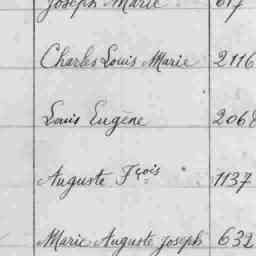 Joseph Marie 617
Charles Louis Marie 2116
Louis Eugène 2068
Auguste Fçois 1137
Marie Auguste Joseph 632